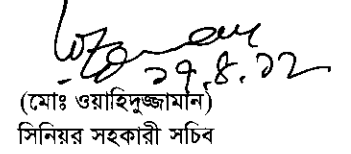 ২৭.৪.১২
(মোঃ ওয়াহিদুজ্জামান)
সিনিয়র সহকারী সচিব